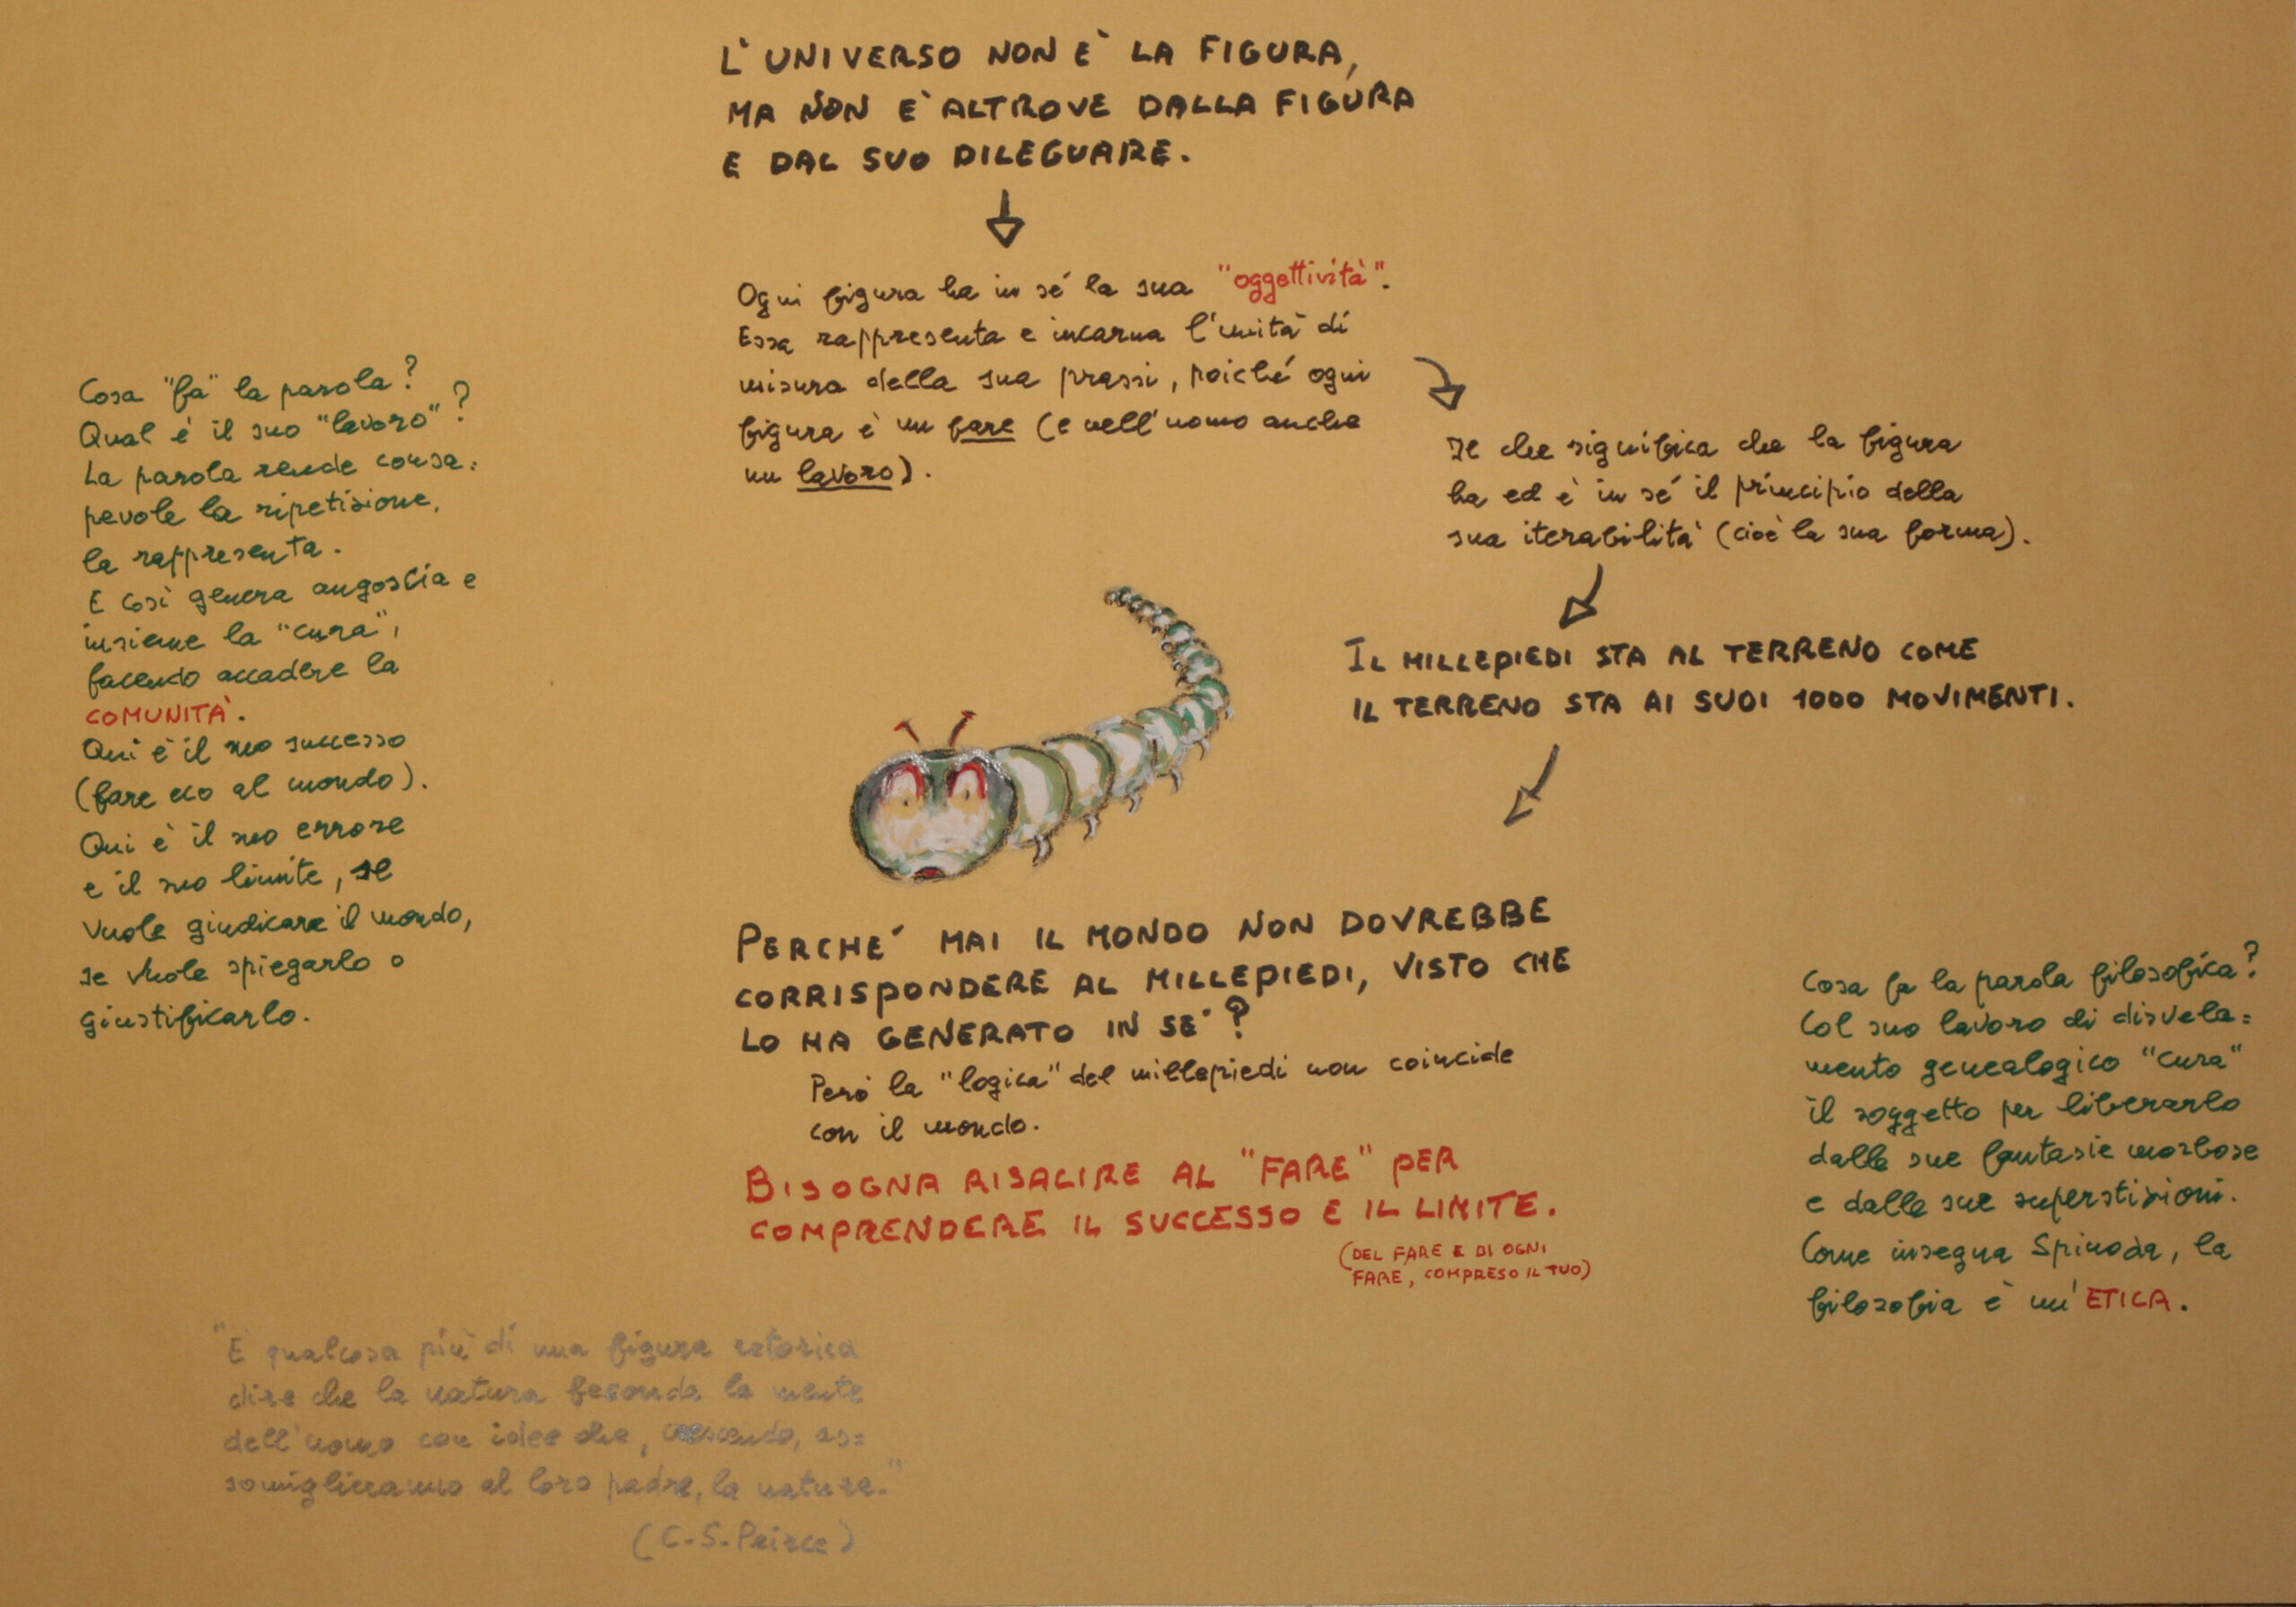 L'UNIVERSO NON E' LA FIGURA,
MA NON E' ALTROVE DALLA FIGURA
E DAL SUO DILEGUARE.
Ogni figura ha in sé la sua "oggettività".
Essa rappresenta e incarna l'unità di
misura della sua prassi, poiché ogni
figura è un fare (e nell'uomo anche
un lavoro).
Il che significa che la figura
ha ed è in sé il principio della
sua iterabilità (cioè la sua forma).
IL MILLEPIEDI STA AL TERRENO COME
IL TERRENO STA AI SUOI 1000 MOVIMENTI.
PERCHE' MAI IL MONDO NON DOVREBBE
CORRISPONDERE AL MILLEPIEDI, VISTO CHE
LO HA GENERATO IN SE'?
Però la "logica" del millepiedi non coincide
con il mondo.
BISOGNA RISALIRE AL "FARE" PER
COMPRENDERE IL SUCCESSO E IL LIMITE.
(DEL FARE E DI OGNI
FARE, COMPRESO IL TUO)
Cosa "fa" la parola?
Qual è il suo "lavoro"?
La parola rende consa=
pevole la ripetizione,
la rappresenta.
E così genera angoscia e
insieme la "cura",
facendo accadere la
COMUNITÀ.
Qui è il suo successo
(fare eco al mondo).
Qui è il suo errore
e il suo limite, se
vuole giudicare il mondo,
se vuole spiegarlo o
giustificarlo.
Cosa fa la parola filosofica?
Col suo lavoro di disvela=
mento genealogico "cura"
il soggetto per liberarlo
dalle sue fantasie morbose
e dalle sue superstizioni.
Come insegna Spinoza, la
filosofia è un'ETICA.
"E' qualcosa più di una figura retorica
dire che la natura feconda la mente
dell'uomo con idee che, crescendo, as=
somiglieranno al loro padre, la natura."
(C.S. Peirce)